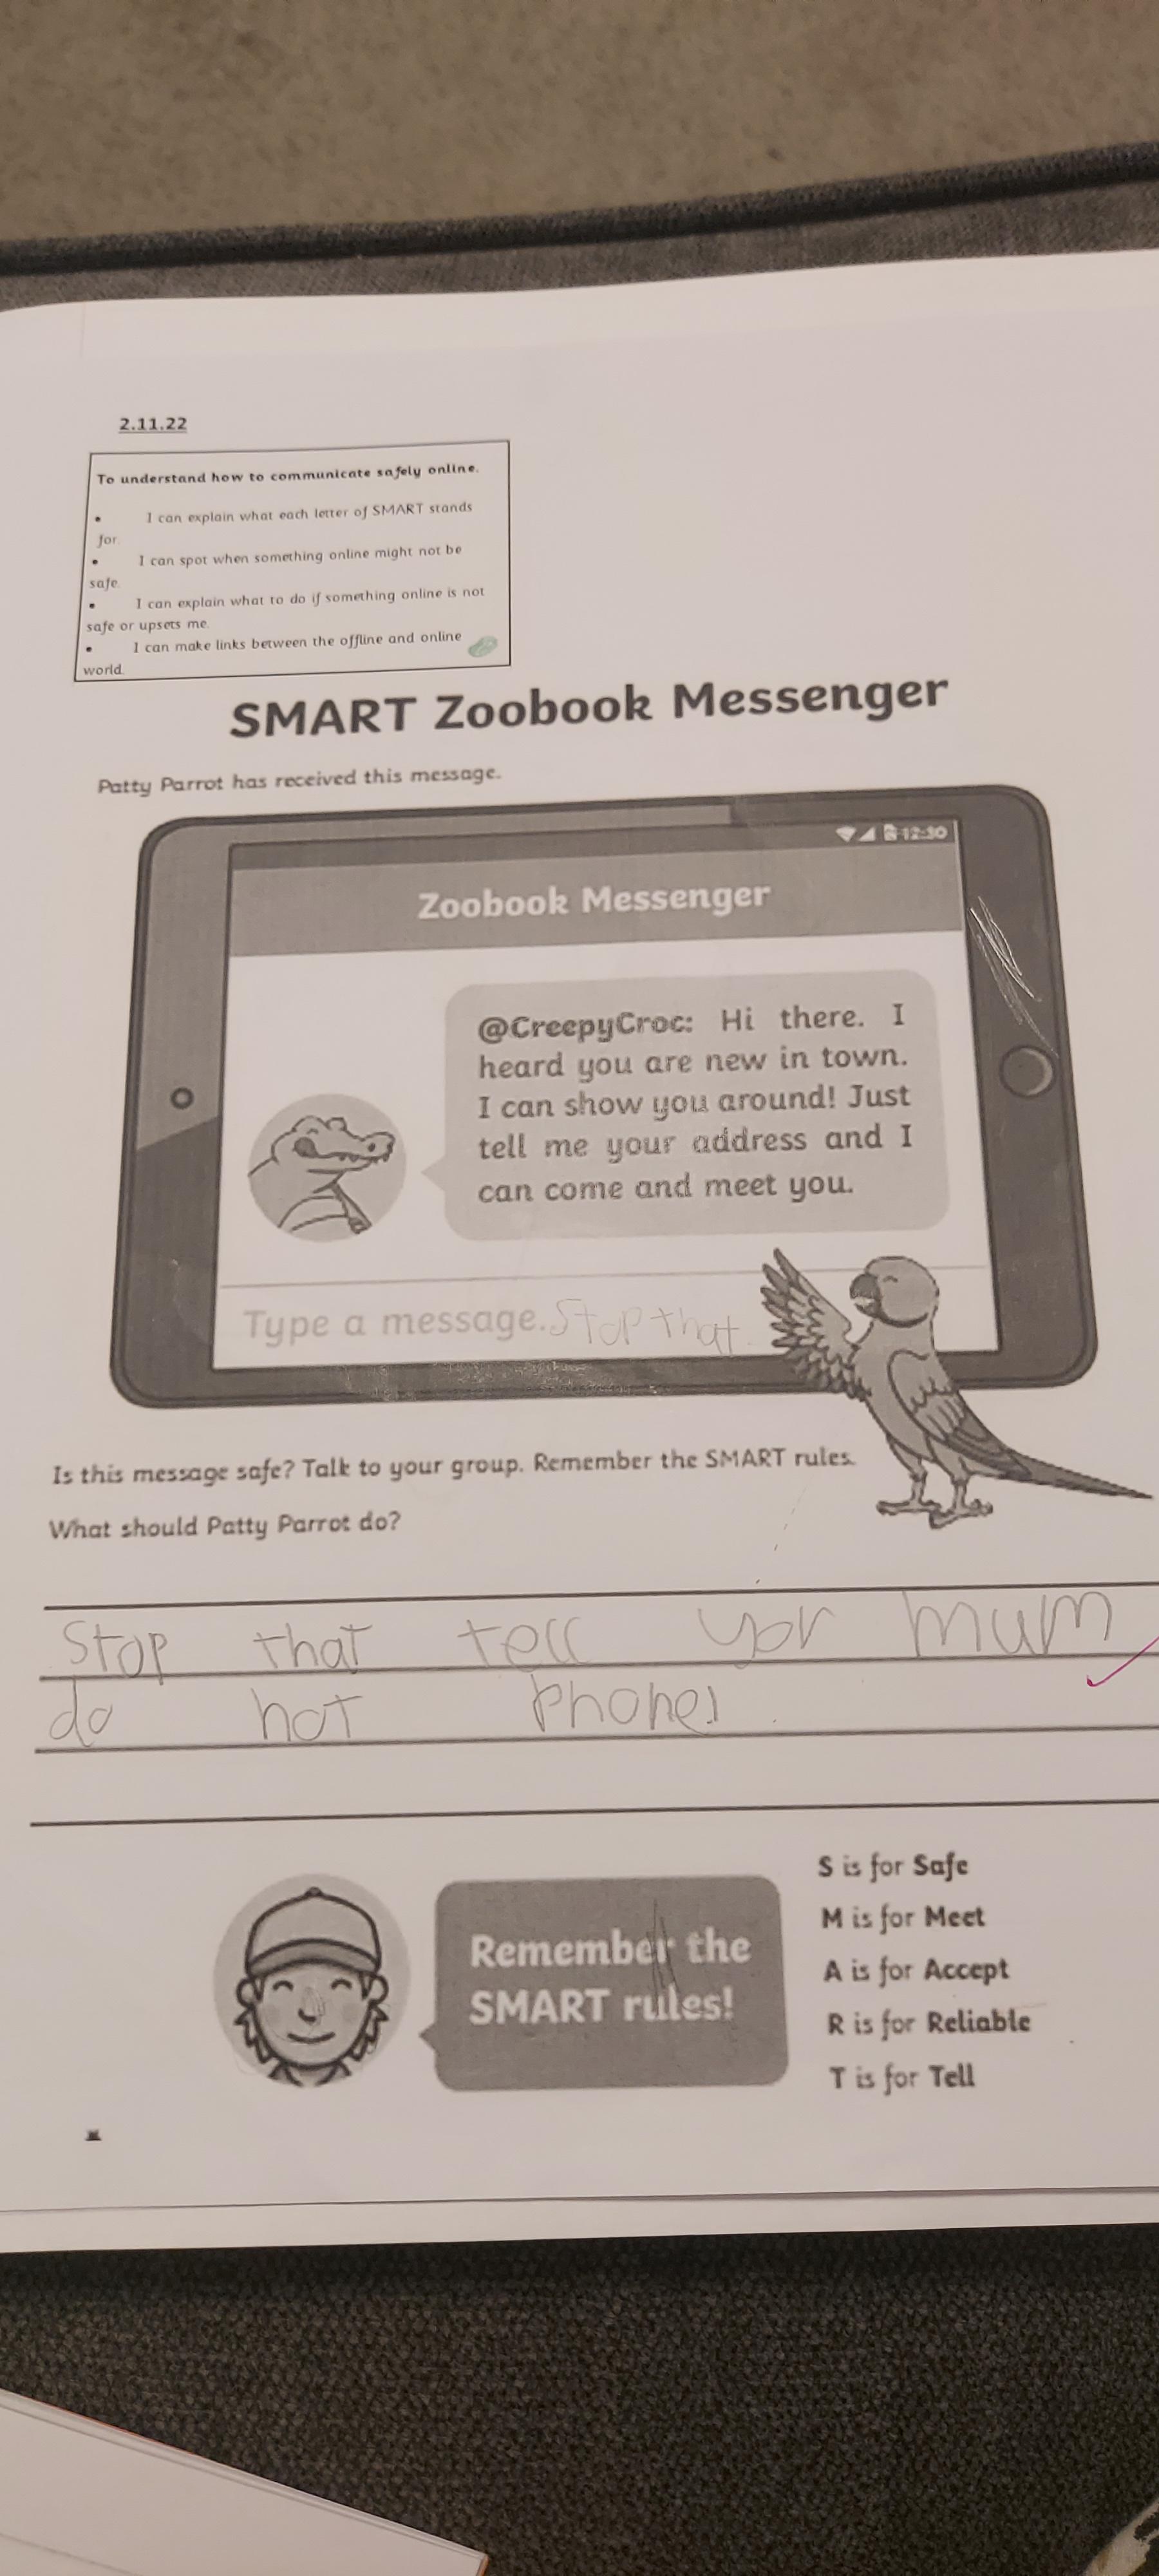 2.11.22
To understand how to communicate safely online.
• I can explain what each letter of SMART stands
for.
• I can spot when something online might not be
safe.
• I can explain what to do if something online is not
safe or upsets me.
• I can make links between the offline and online
world.
SMART Zoobook Messenger
Patty Parrot has received this message.
12:30
Zoobook Messenger
@CreepyCroc: Hi there. I
heard you are new in town.
I can show you around! Just
tell me your address and I
can come and meet you.
Type a message. Stop that.
Is this message safe? Talk to your group. Remember the SMART rules.
What should Patty Parrot do?
Stop that tell yor mum
do not phones.
Remember the
SMART rules!
S is for Safe
M is for Meet
A is for Accept
R is for Reliable
T is for Tell